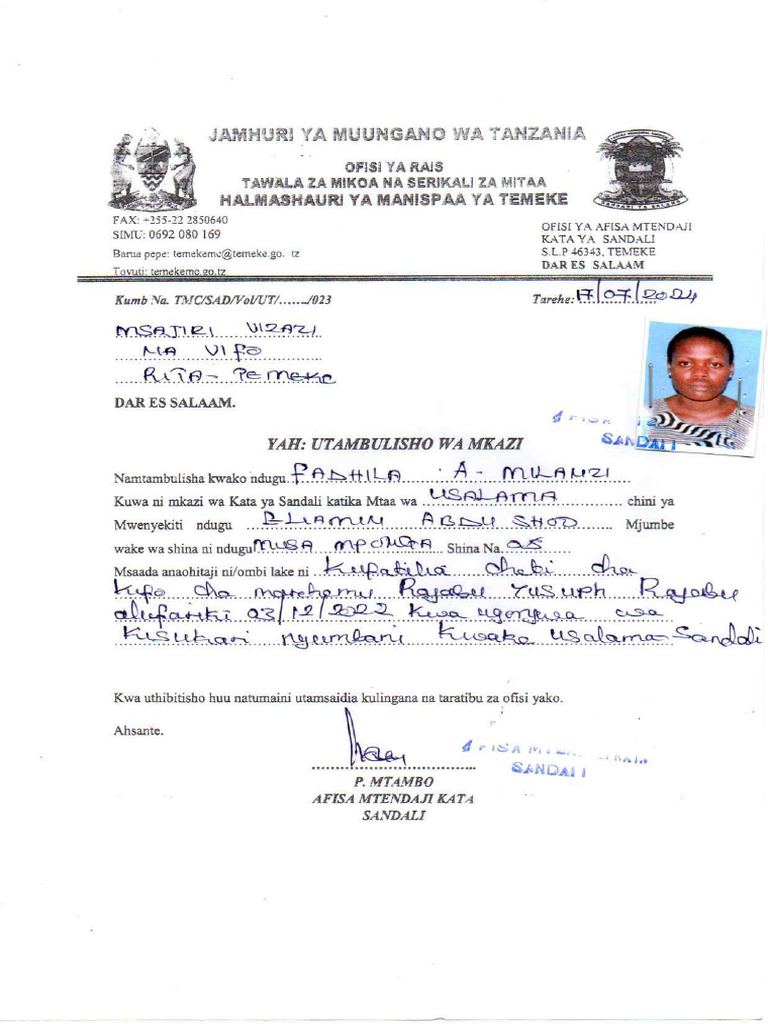 JAMHURI YA MUUNGANO WA TANZANIA
OFISI YA RAIS
TAWALA ZA MIKOA NA SERIKALI ZA MITAA
HALMASHAURI YA MANISPAA YA TEMEKE
FAX: +255-22 2850640
SIMU: 0692 080 169
Barua pepe: temekemc@temeke.go. tz
Tovuti: temekemc.go.tz
OFISI YA AFISA MTENDAJI
KATA YA SANDALI
S.L.P 46343, TEMEKE
DAR ES SALAAM
Kumb Na. TMC/SAD/Vol/UT/......./023
Tarehe: 17/07/2024
MSAJIRI VIZAZI
NA VIFO
RITA - TEMEKE
DAR ES SALAAM.
SANDALI
YAH: UTAMBULISHO WA MKAZI
Namtambulisha kwako ndugu FADHILA A - MLANZI
Kuwa ni mkazi wa Kata ya Sandali katika Mtaa wa USALAMA chini ya
Mwenyekiti ndugu ABDU Mjumbe
wake wa shina ni ndugu MUSA MPONGA Shina Na. 05
Msaada anaohitaji ni/ombi lake ni Kufatilia cheti cha
Kifo cha marehemu Rajabu Yusuph Rajabu
alifariki 03/12/2022 kwa ugonjwa wa
Kisukari nyumbani Kwake Usalama-Sandali
Kwa uthibitisho huu natumaini utamsaidia kulingana na taratibu za ofisi yako.
Ahsante.
SANDALI
P. MTAMBO
AFISA MTENDAJI KATA
SANDALI